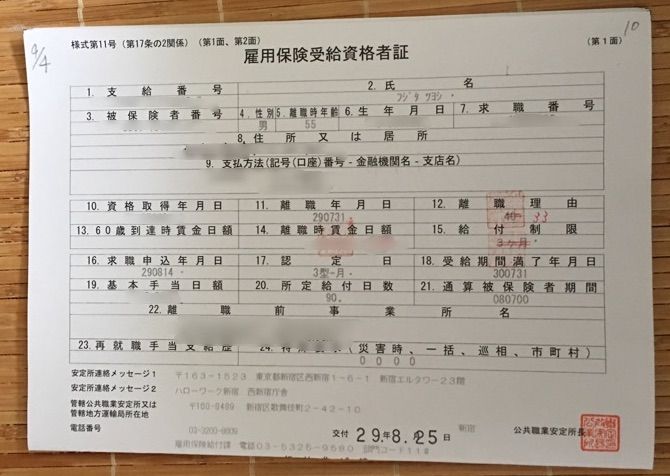 9/4
10
様式第11号（第17条の2関係）（第1面、第2面）
雇用保険受給資格者証
（第1面）
1. 支給番号
2. 氏名
フジタ ツヨシ
3. 被保険者番号
4. 性別
5. 離職時年齢
6. 生年月日
7. 求職番号
男
55
8. 住所又は居所
9. 支払方法(記号(口座)番号-金融機関名-支店名)
10. 資格取得年月日
11. 離職年月日
12. 離職理由
290731
40
33
13. 60歳到達時賃金日額
14. 離職時賃金日額
15. 給付制限
3ヶ月
16. 求職申込年月日
17. 認定日
18. 受給期間満了年月日
290814
3型-月
300731
19. 基本手当日額
20. 所定給付日数
21. 通算被保険者期間
90
080700
22. 離職前事業所名
23. 再就職手当支給歴
24. (災害時、一括、巡相、市町村)
0000
安定所連絡メッセージ1
〒163-1523 東京都新宿区西新宿1-6-1 新宿エルタワー23階
安定所連絡メッセージ2
ハローワーク新宿 西新宿庁舎
管轄公共職業安定所又は
管轄地方運輸局所在地
〒160-8489 新宿区歌舞伎町2-42-10
電話番号
03-3200-8609
交付 29.8.25日
新宿
公共職業安定所長
雇用保険給付課 電話03-5325-9580 部門コード11#